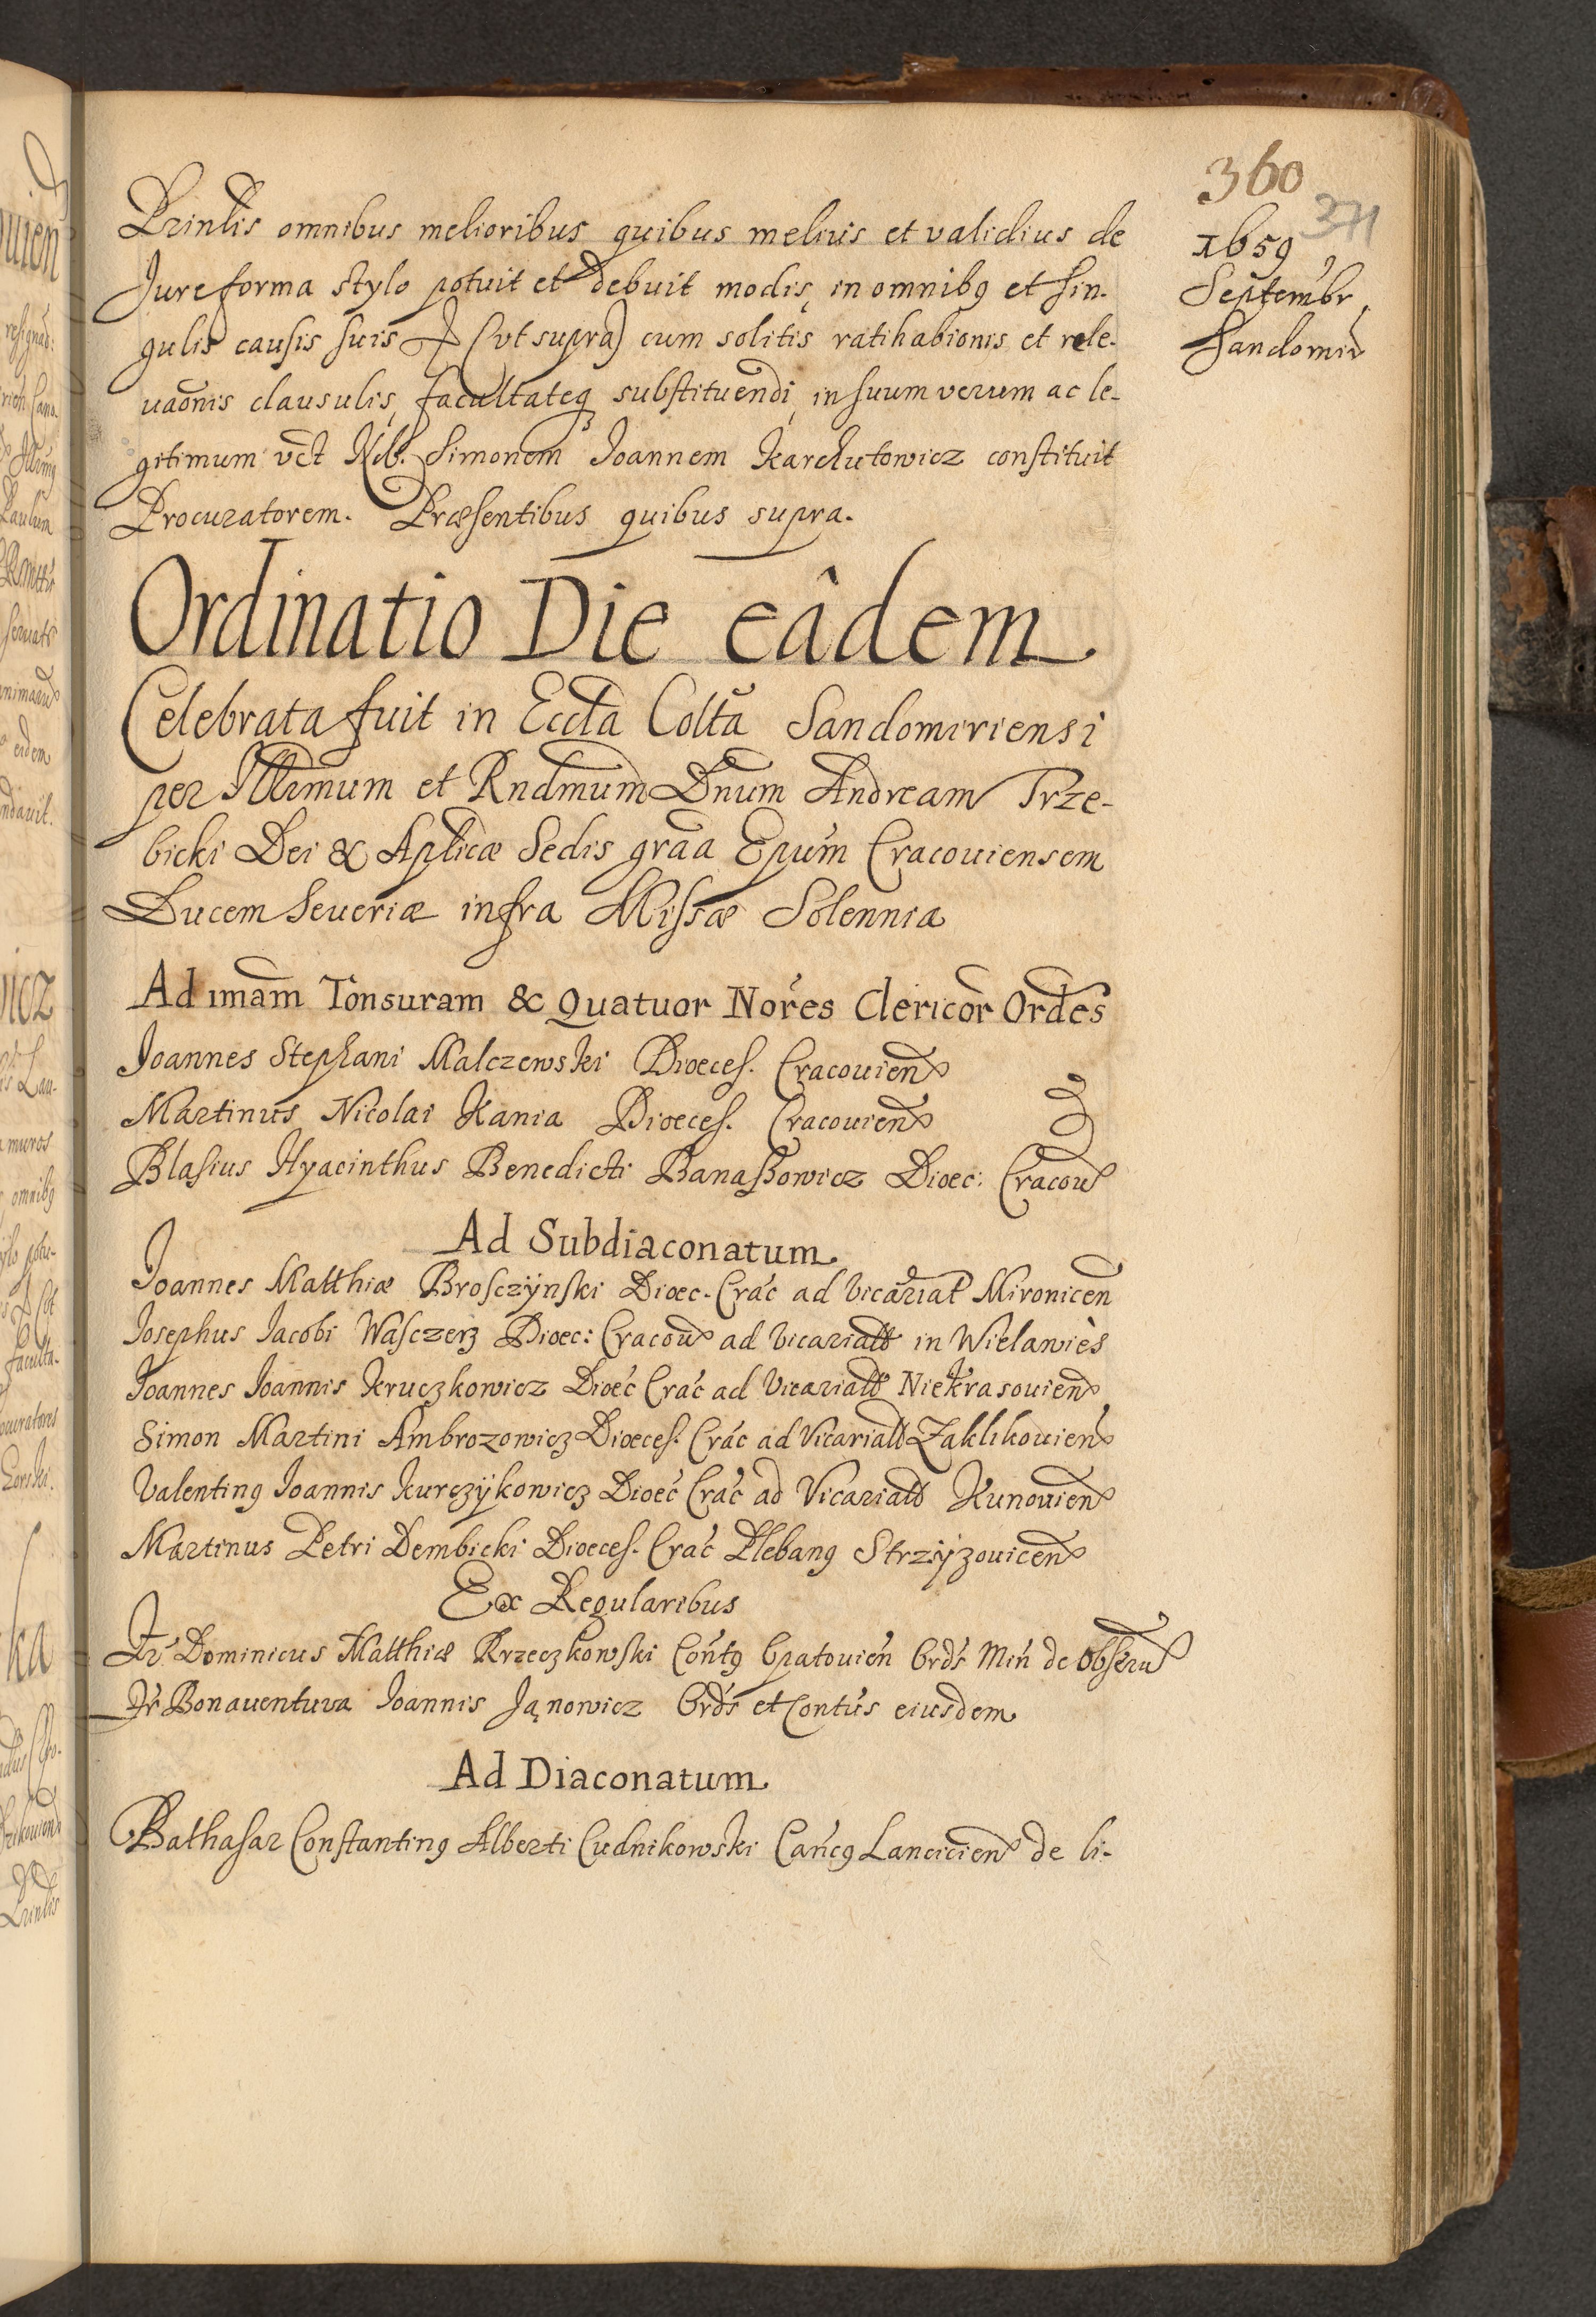 360
371
1659
Septembr
Sandomir
Prinlis omnibus melioribus quibus melius et validius de
Jure forma stylo potuit et debuit modis, in omnibq et sin-
gulis causis suis (vt supra) cum solitis ratihabionis et rele-
uaonis clausulis, facultateq substituendi, in suum verum ac le-
gitimum vct Nob. Simonem Ioannem Karchutowicz constituit
Procuratorem. Præsentibus quibus supra.
Ordinatio Die eâdem
Celebrata fuit in Eccla Collta Sandomiriensi
per Illrmum et Rndmum Dnum Andream Trze-
bicki Dei & Aplicæ Sedis graa Epum Cracouiensem
Ducem Seueriæ infra Missæ Solennia
Ad imam Tonsuram & Quatuor Nores Clericor Ordes
Joannes Stephani Malczewski Dioeces. Cracouien
Martinus Nicolai Kania Dioeces. Cracouien
Blasius Hyacinthus Benedicti Banaszowicz Dioec: Cracou
Ad Subdiaconatum
Joannes Matthiæ Brosczÿnski Dioec. Crac ad Vicariat Mironicen
Josephus Jacobi Wasczerz Dioec: Cracou ad Vicariatt in Wielawiès
Joannes Joannis Kruczkowicz Dioec Crac ad Vicariatt Niekrasouien
Simon Martini Ambrozowicz Dioeces. Crac ad Vicariatt Zaklikouien
Valentinq Joannis Kurczÿkowicz Dioec Crac ad Vicariatt Kunouien
Martinus Petri Dembicki Dioeces. Crac Plebanq Strzÿzouicen
Ex Regularibus
Fr Dominicus Matthiæ Krzeczkowski Contq Opatouien Ords Min de Obseru
Fr Bonauentura Joannis Janowicz Ords et Contus eiusdem
Ad Diaconatum
Balthasar Constantinq Alberti Cudnikowski Cancq Lancicien de li-